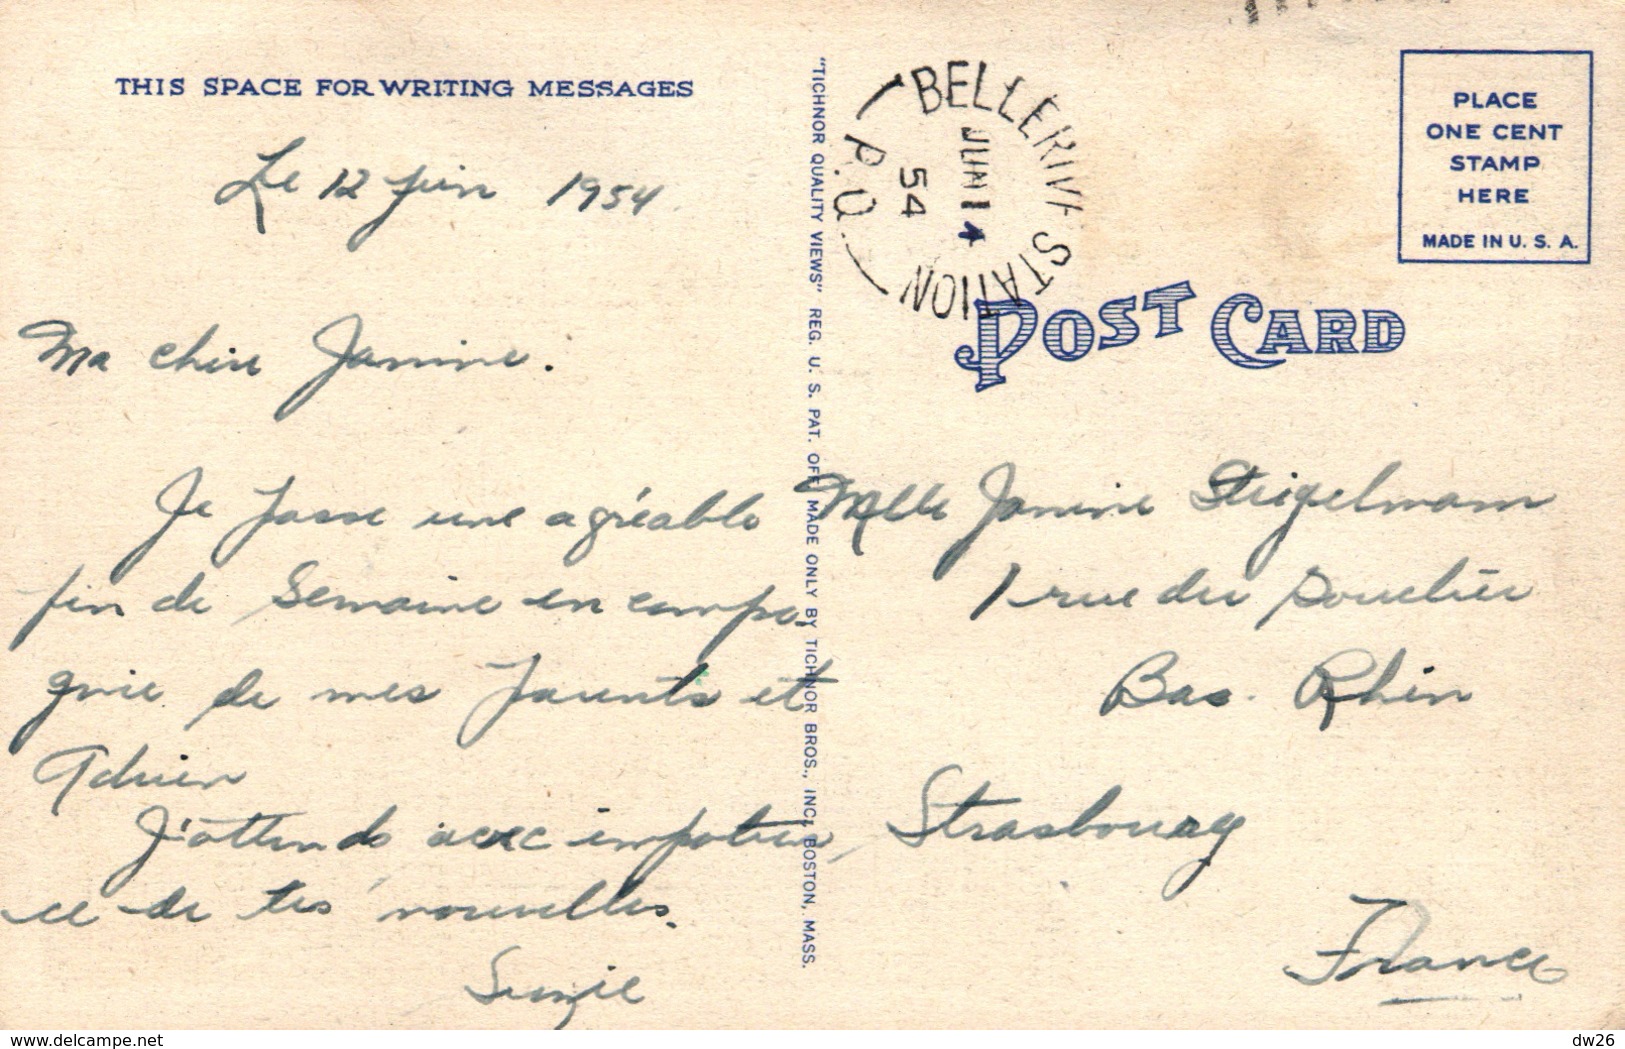 THIS SPACE FOR WRITING MESSAGES
Le 12 juin 1954
Ma chère Janine.
Je passe une agréable
fin de Semaine en compa-
gnie de mes parents et
Adrien
J'attends avec impatien-
ce de tes nouvelles.
Suzie
"TICHNOR QUALITY VIEWS" REG. U. S. PAT. OFF. MADE ONLY BY TICHNOR BROS., INC., BOSTON, MASS.
BELLERIVE STATION
P.Q.
JUN 14
54
PLACE
ONE CENT
STAMP
HERE
MADE IN U. S. A.
POST CARD
Melle Janine Steigelmann
1 rue du
Bas. Rhin
Strasbourg
France
delcampe.net
dw26